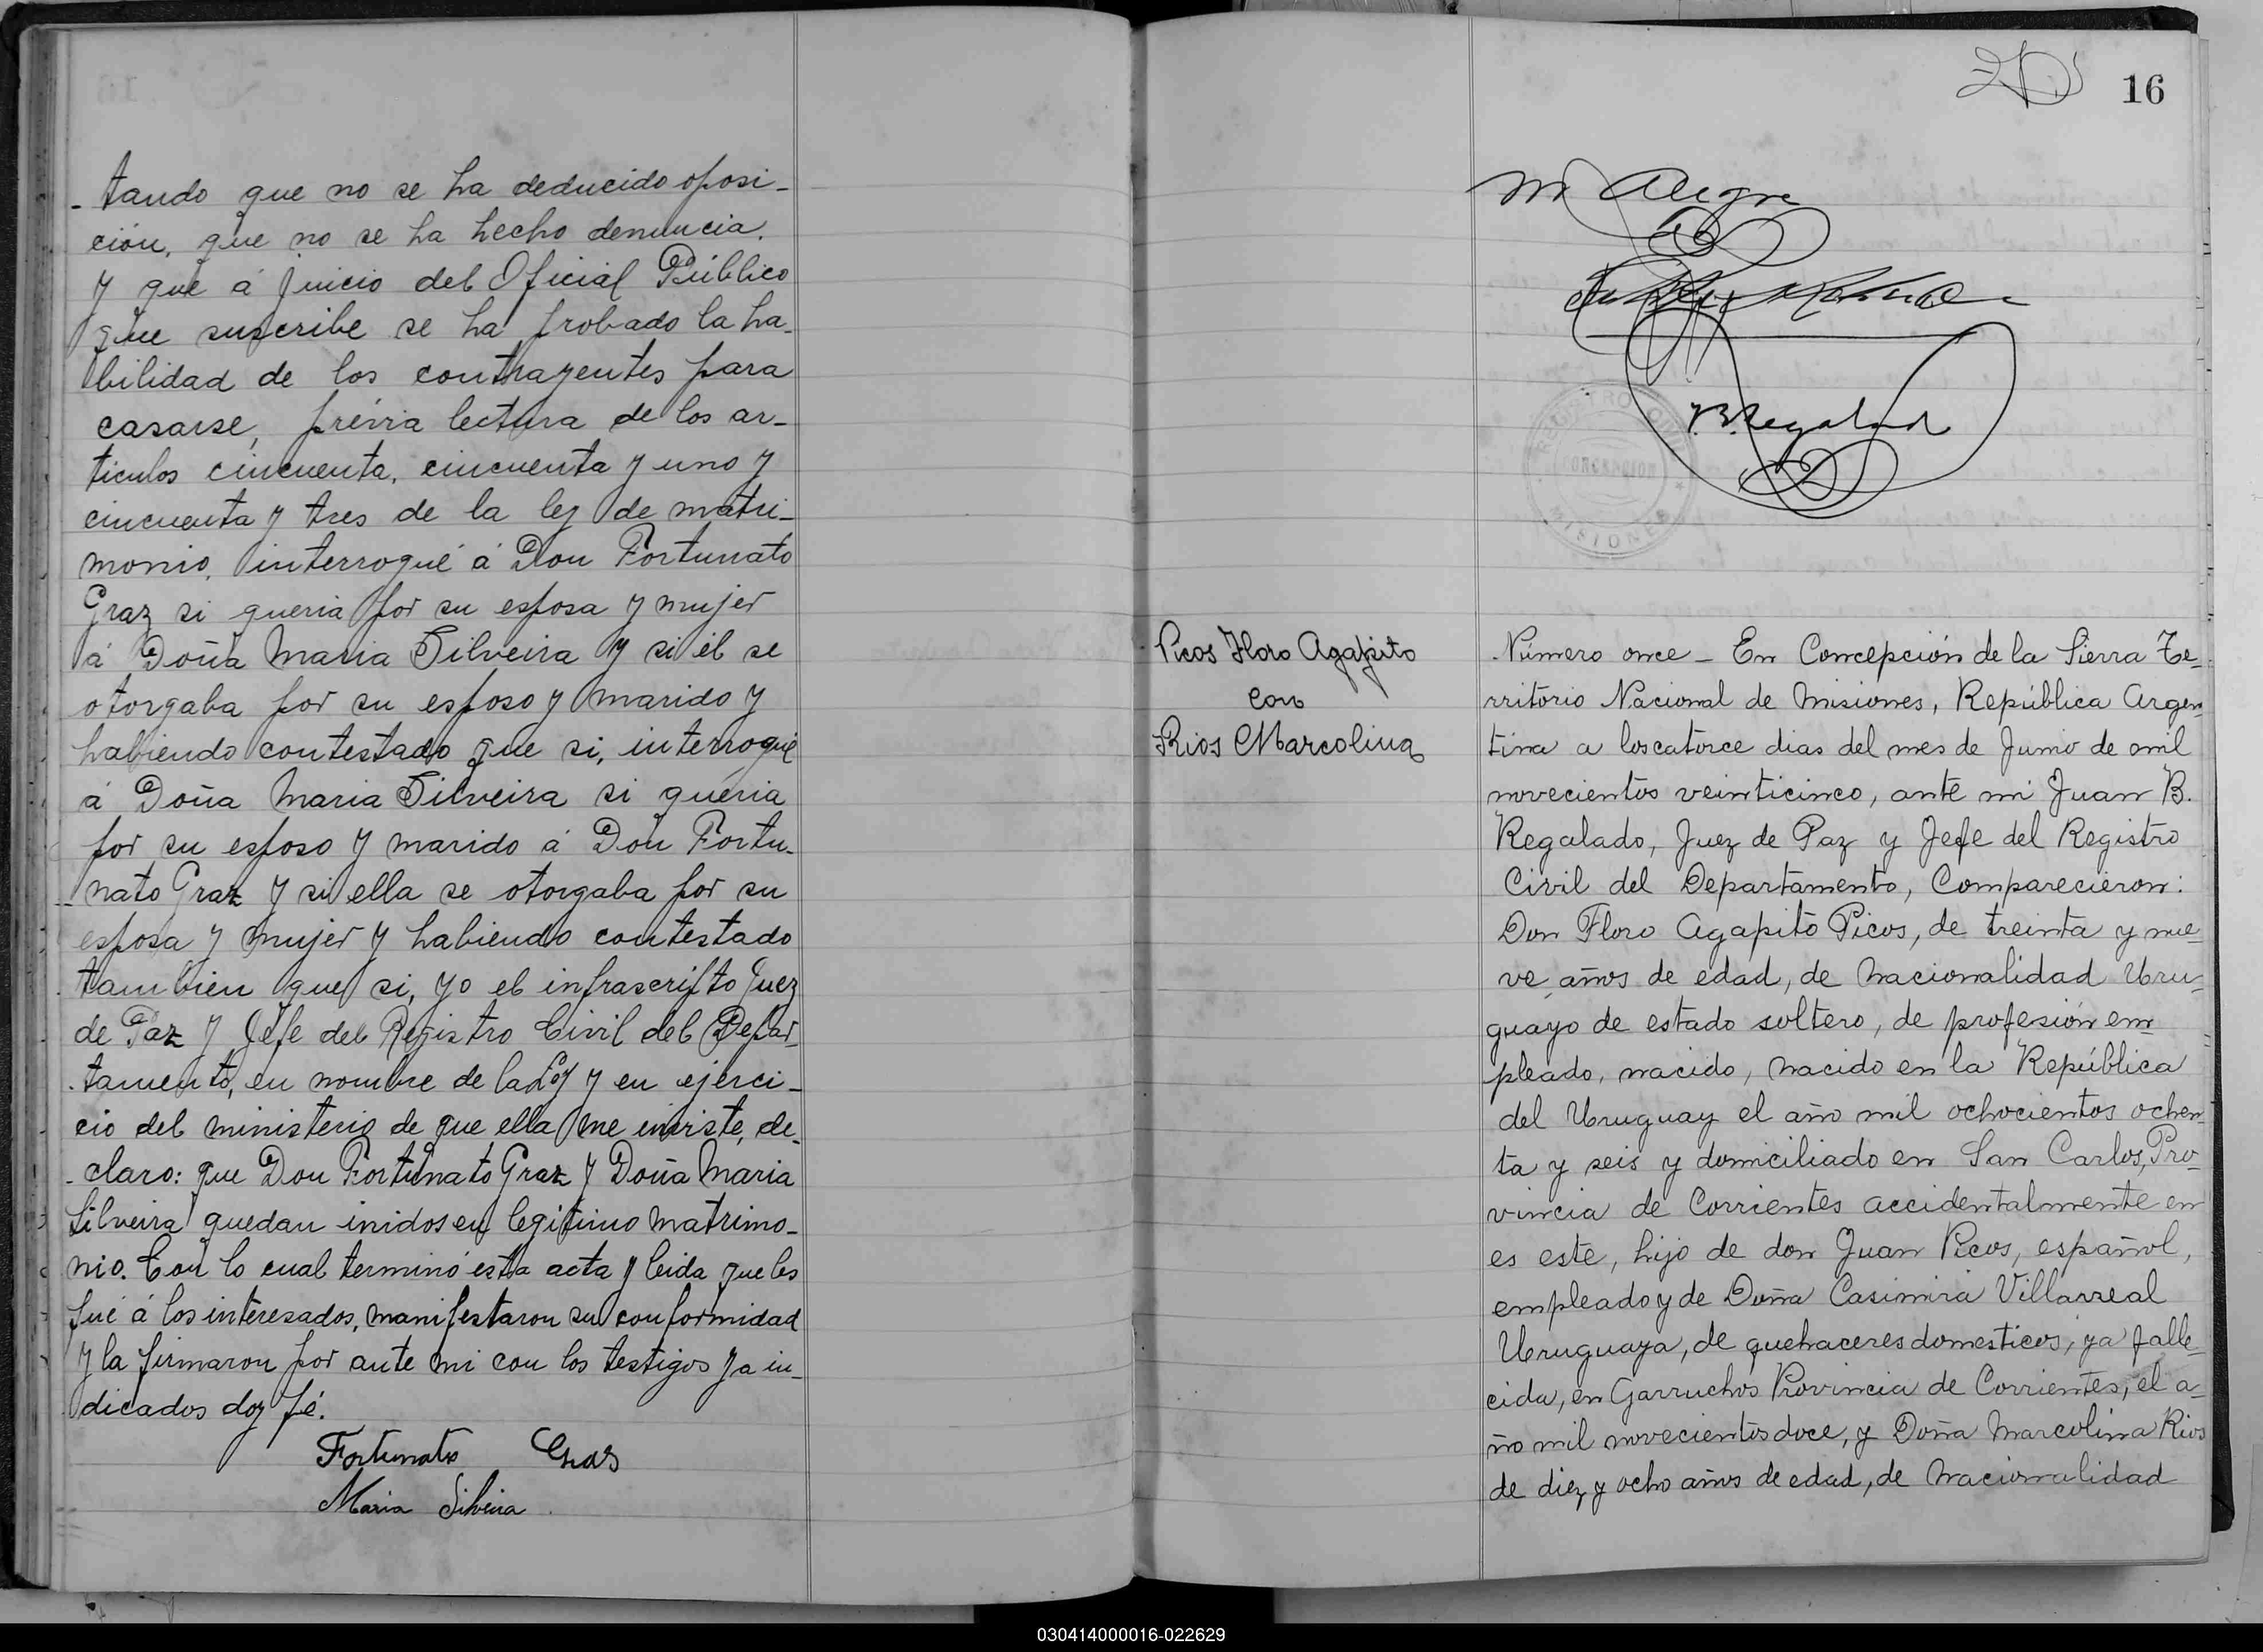 - tando que no se ha deducido oposi-
ción, que no se ha hecho denuncia.
y que á juicio del Oficial Público
que suscribe se ha probado la ha-
bilidad de los contrayentes para
casarse, prévia lectura de los ar-
ticulos cincuenta, cincuenta y uno y
cincuenta y tres de la ley de matri-
monio, interrogué á Don Fortunato
Graz si queria por su esposa y mujer
á Doña Maria Silveira y si él se
otorgaba por su esposo y marido y
habiendo contestado que si, interrogué
á Doña Maria Silveira si queria
por su esposo y marido á Don Fortu-
nato Graz y si ella se otorgaba por su
esposa y mujer y habiendo contestado
tambien que si, yo el infrascripto Juez
de Paz y Jefe del Registro Civil del Depar-
tamento, en nombre de la Ley y en ejerci-
cio del ministerio de que ella me iniriste, de-
- claro: que Don Fortunato Graz y Doña Maria
Silveira quedan inidos en legitimo matrimo-
nio. Con lo cual terminó esta acta y leida que les
fué á los interesados, manifestaron su conformidad
y la firmaron por ante mi con los testigos ya in-
dicados doy fé.
Fortunato Gras
Maria Silveira
16
M Alegre
B. Regalado
REGISTRO CIVIL
CONCEPCION
MISIONES
Picos Floro Agapito
con
Rios Marcolina
Número once - En Concepción de la Sierra Te-
rritorio Nacional de Misiones, República Argen-
tina a los catorce dias del mes de Junio de mil
novecientos veinticinco, ante mi Juan B.
Regalado, Juez de Paz y Jefe del Registro
Civil del Departamento, Comparecieron:
Don Floro Agapito Picos, de treinta y nue-
ve años de edad, de nacionalidad Uru-
guayo de estado soltero, de profesión em-
pleado, nacido, nacido en la República
del Uruguay el año mil ochocientos ochen-
ta y seis y domiciliado en San Carlos, Pro-
vincia de Corrientes accidentalmente en
es este, hijo de don Juan Picos, español,
empleado y de Doña Casimira Villarreal
Uruguaya, de quehaceres domesticos, ya falle-
cida, en Garruchos Provincia de Corrientes, el a-
ño mil novecientos doce, y Doña Marcolina Rios
de diez y ocho años de edad, de nacionalidad
030414000016-022629